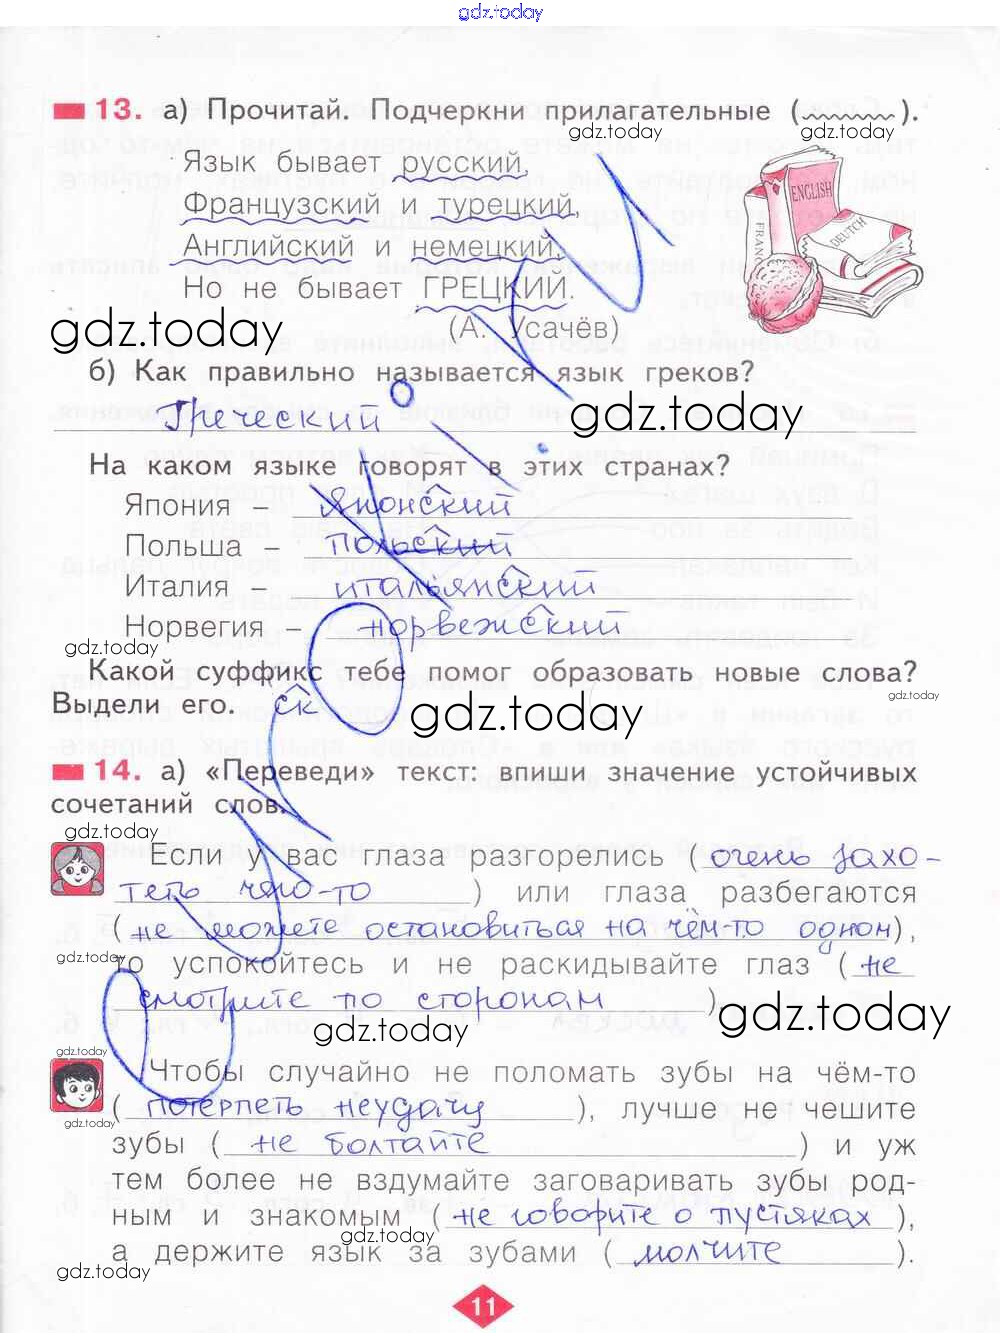 gdz.today
13. а) Прочитай. Подчеркни прилагательные ( ).
gdz.today gdz.today
Язык бывает русский,
Французский и турецкий,
Английский и немецкий.
Но не бывает ГРЕЦКИЙ.
ENGLISH
DEUTCH
gdz.today
(А. Усачёв)
б) Как правильно называется язык греков?
Греческий
gdz.today
На каком языке говорят в этих странах?
Япония – Японский
Польша – польский
Италия – итальянский
Норвегия – норвежский
gdz.today
Какой суффикс тебе помог образовать новые слова?
gdz.today
Выдели его. ск
gdz.today
14. а) «Переведи» текст: впиши значение устойчивых
сочетаний слов.
gdz.today
Если у вас глаза разгорелись (очень захо-
теть чего-то) или глаза разбегаются
gdz.today
(не можете остановиться на чём-то одном),
gdz.today
то успокойтесь и не раскидывайте глаз (не
смотрите по сторонам)
gdz.today gdz.today
gdz.today
Чтобы случайно не поломать зубы на чём-то
(потерпеть неудачу), лучше не чешите
gdz.today
зубы (не болтайте) и уж
тем более не вздумайте заговаривать зубы род-
ным и знакомым (не говорите о пустяках),
gdz.today
а держите язык за зубами (молчите).
gdz.today
11